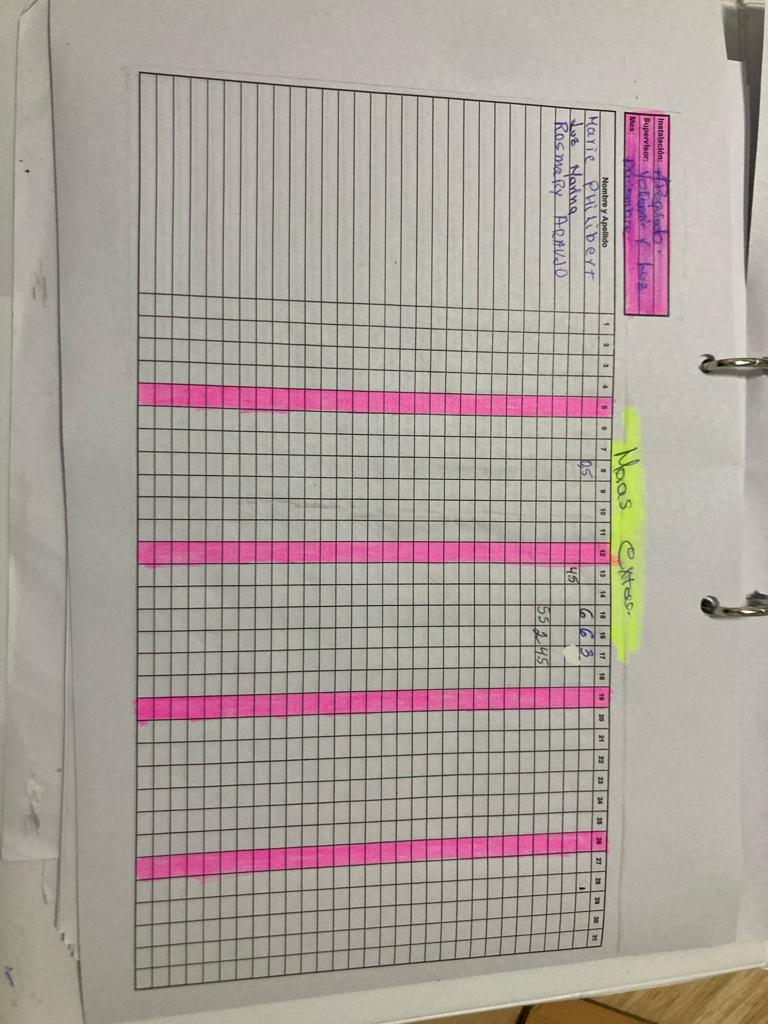 Instalación:
Supervisor: y Luz
Mes: Diciembre
Horas extras.
Nombre y Apellido 1 2 3 4 5 6 7 8 9 10 11 12 13 14 15 16 17 18 19 20 21 22 23 24 25 26 27 28 29 30 31
Marie PHilibert 6 6 3
Luz Marina 45
ROSMARY ARAUJO
55 2 45